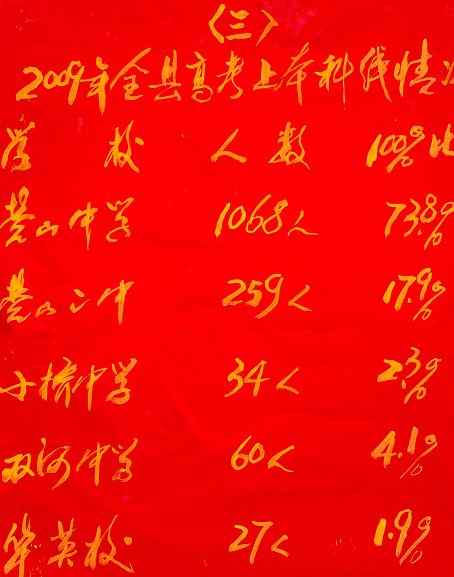 〈三〉
2009年全县高考上本科线情况
学校 人数 100%比
营山中学 1068人 73.8%
营山二中 259人 17.9%
小桥中学 34人 2.3%
双河中学 60人 4.1%
华英校 27人 1.9%